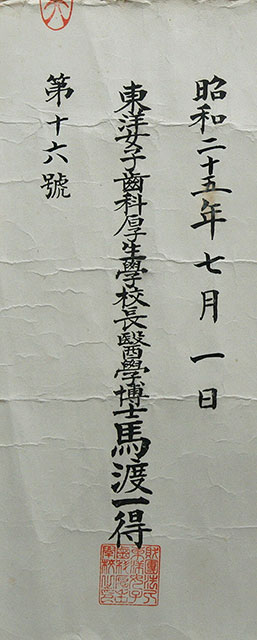 昭和二十五年七月一日
東洋女子齒科厚生學校長醫學博士馬渡一得
第十六號